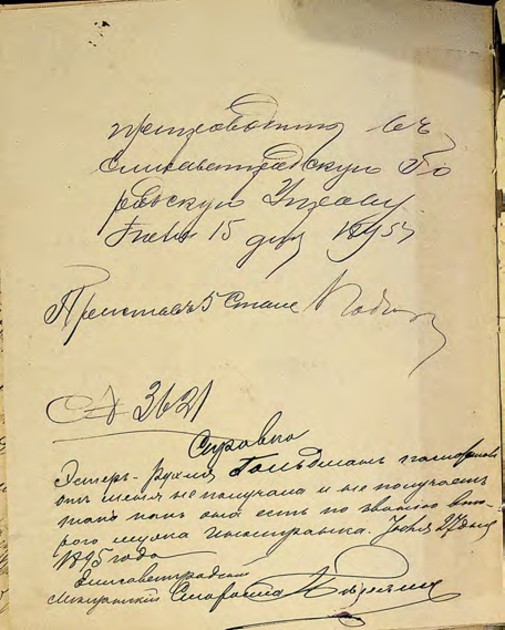 препроводить въ
Елисаветградскую Го
родскую Управу.
Іюня 15 дня 1895 г
Приставъ 5 Стана
№ 3621
Справка
Эстеръ-Рухля Гольдманъ паспорта
отъ меня не получала и не получаетъ
такъ какъ она есть по званію вто-
рого мужа иностранка. Іюня 27 дня
1895 года
Елисаветградскій
Мѣщанскій Староста